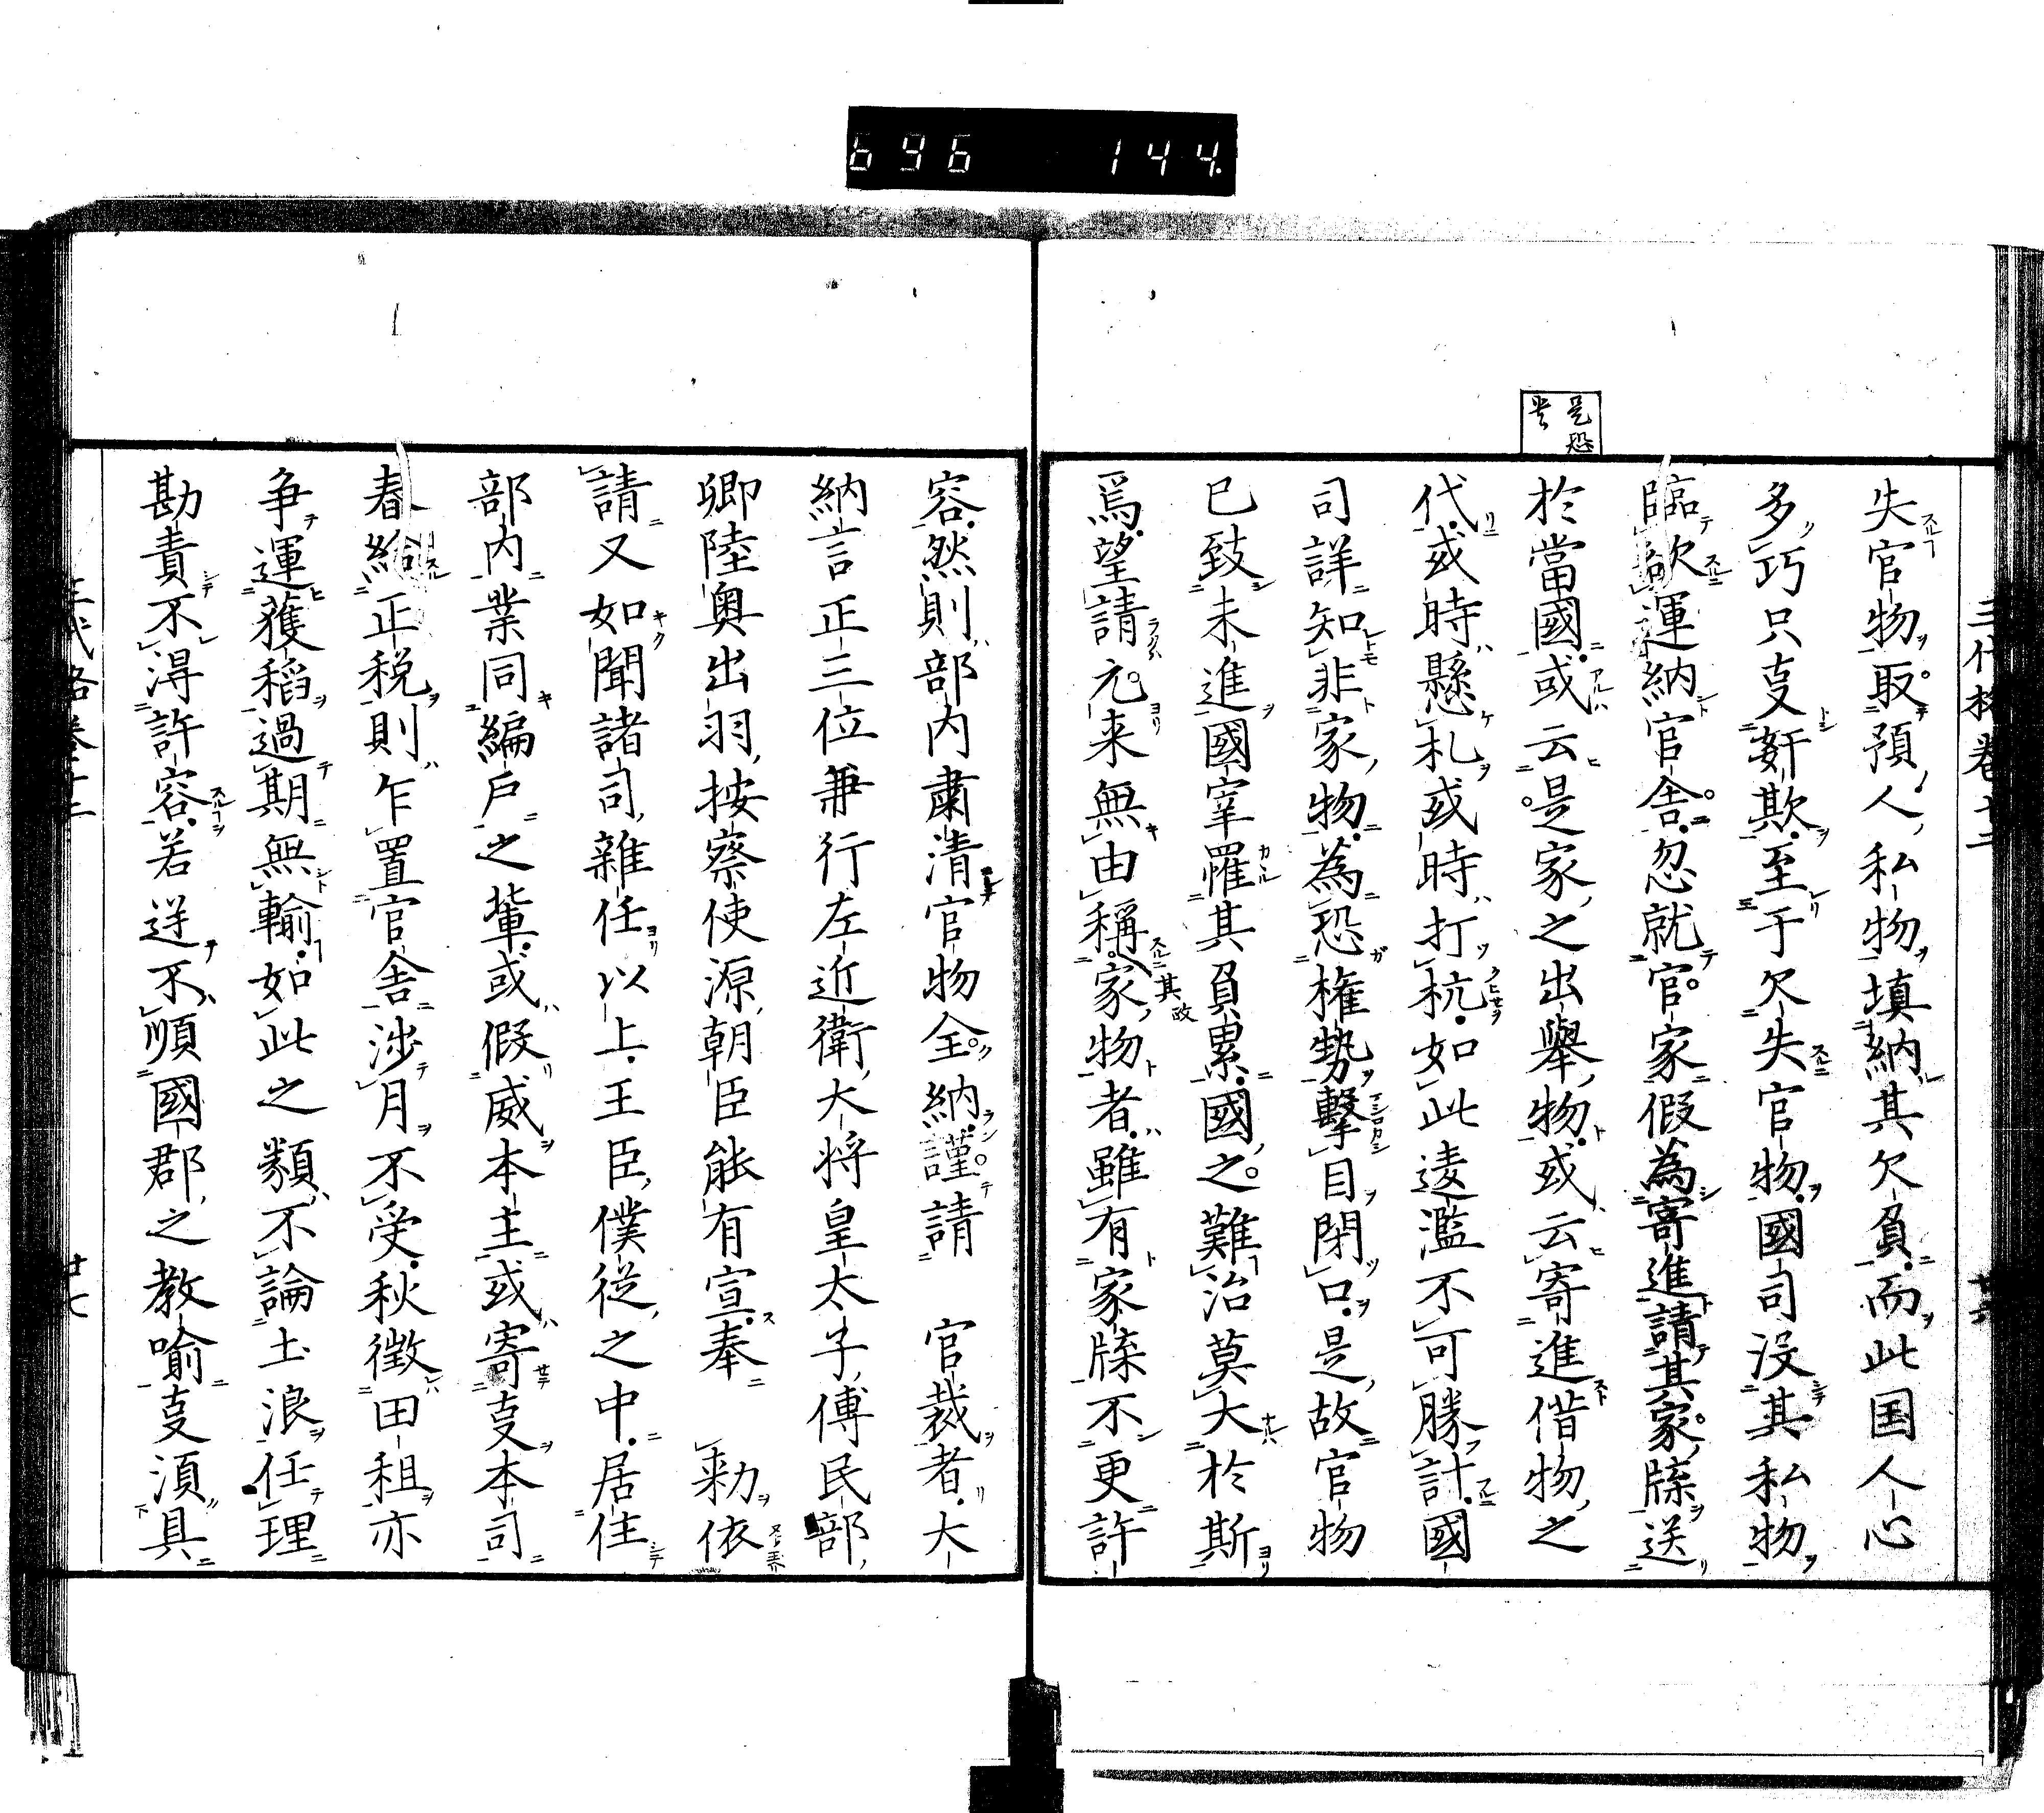 696 144
三代格巻十二
失官物取預人私物填納其欠負而此国人心
多巧只叓姧欺至于欠失官物國司没其私物
臨欲運納官舎忽就官家假為寄進請其家牒送
於當國或云是家之出舉物或云寄進借物之
代或時懸札或時打杭如此逺濫不可勝計國
司詳知非家物為恐権勢擊目閉口是故官物
已致未進國宰罹其負累國之難治莫大於斯
焉望請元来無由稱家物者雖有家牒不更許
容然則部内粛清官物全納謹請 官裁者大
納言正三位兼行左近衛大将皇太子傅民部
卿陸奥出羽按察使源朝臣能有宣奉 勅依
請又如聞諸司雜任以上王臣僕従之中居住
部内業同編戸之輩或假威本主或寄叓本司
春給正税則乍置官舎渉月不受秋徴田租亦
争運獲稻過期無輸如此之類不論土浪任理
勘責不得許容若逆不順國郡之教喻叓須具
三代格巻十二
廿七